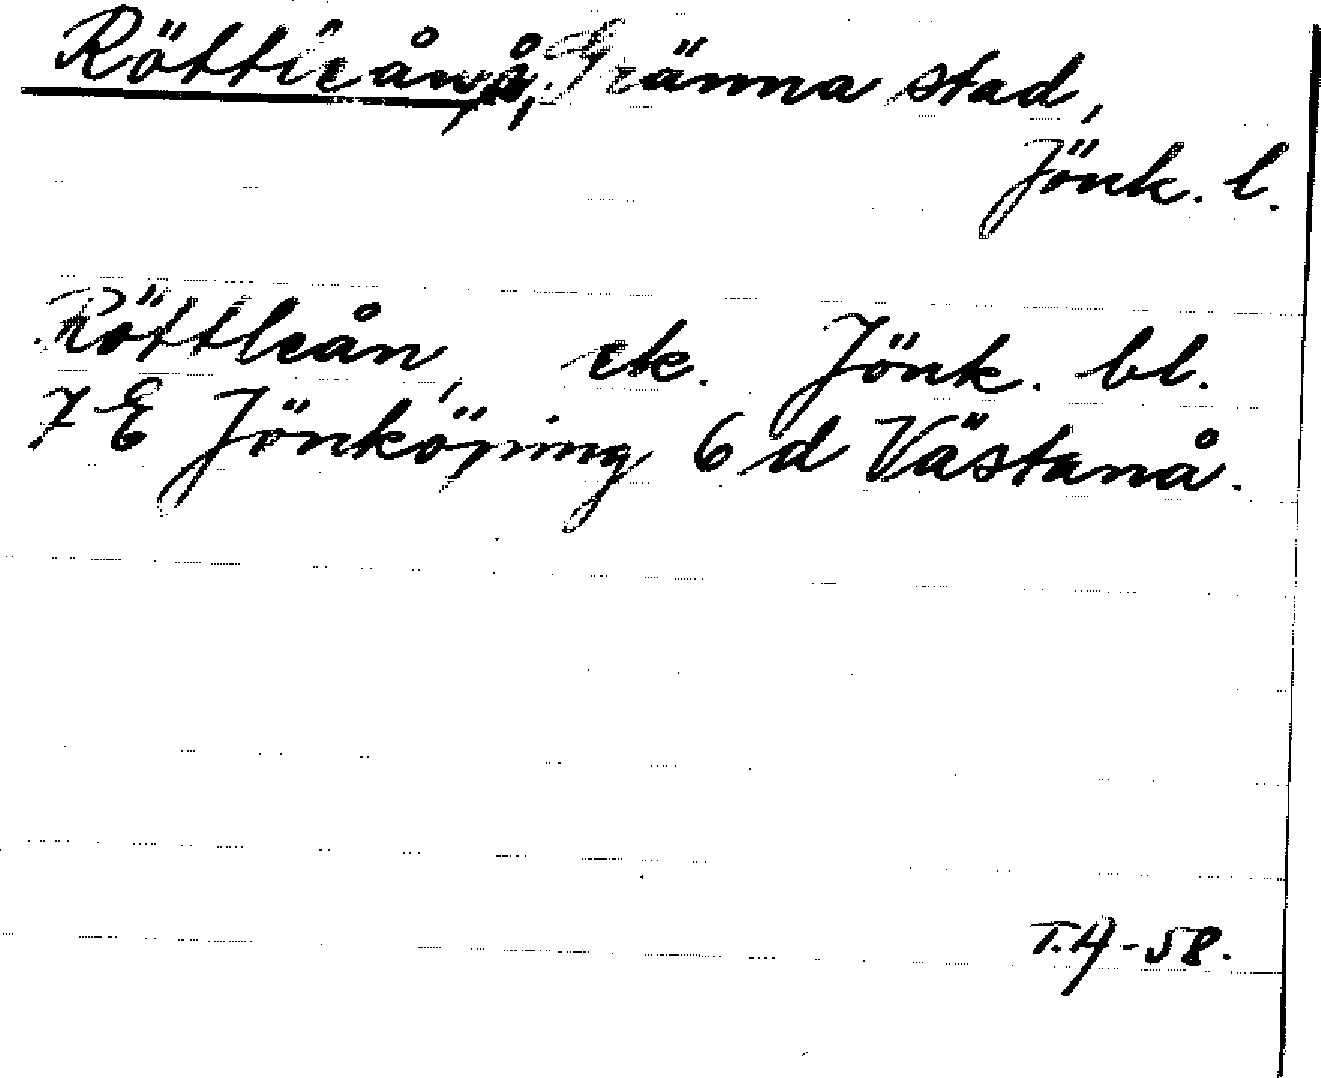 Röttleån, å, Gränna stad,
Jönk. l.
Röttleån, ek. Jönk. bl.
7 E Jönköping 6 d Västanå.
T.H-58.